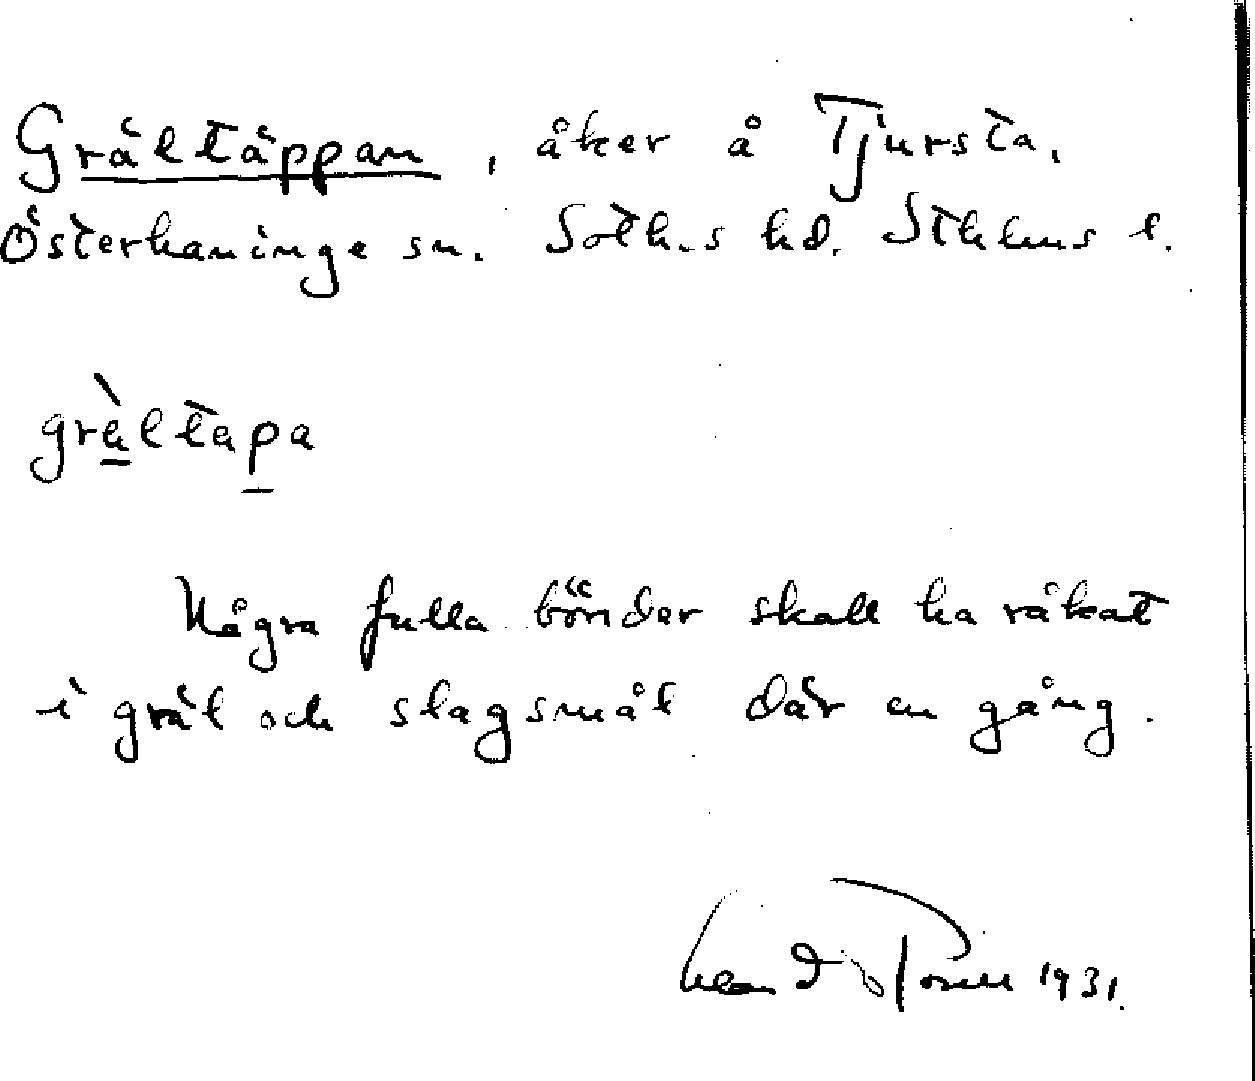 Grältäppan, åker å Tjursta,
Österhaninge sn. Soth.s hd. Sthlms l.
gràltapa
Några fulla bönder skall ha råkat
i gräl och slagsmål där en gång.
1931.